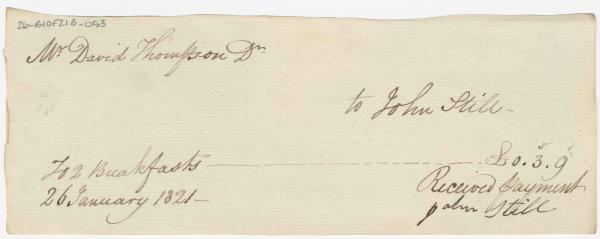 26-B10F21B-0F53
Mr David Thompson Dr
to John Still
To 2 Breakfasts £0.3.9
26 January 1821
Received payment
John Still